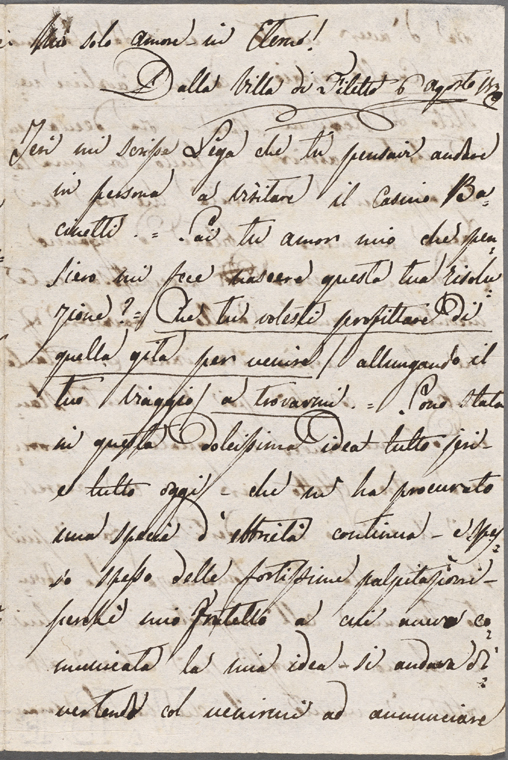 Mio solo amore in Eterno!
Dalla Villa di Filetto 6 agosto
Jeri mi scrisse Lega che tu pensavi andare
in persona a visitare il Casino Ba=
cinetti. = Sai tu amor mio che pen=
siero mi fece nascere questa tua risolu=
zione? = Che tu volesti profittare di
quella gita per venire / allungando il
tuo viaggio / a trovarmi. = Sono stata
in questa Dolcissima Idea tutto jeri-
e tutto oggi - che mi ha procurato
una specie d'ebbrietà continua - e spes=
so spesso delle fortissime palpitazioni -
perchè mio fratello a cui aveva co=
municata la mia idea - si andava di=
vertendo col venirmi ad annunciare